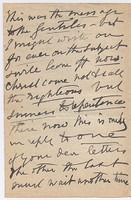 This was the message
to the Gentiles – but
I might write on
for ever on the subject
Christ came not to call
the righteous but
sinners to repentance
there now this is only
in reply to one
of your dear letters
The other the last
must wait another time